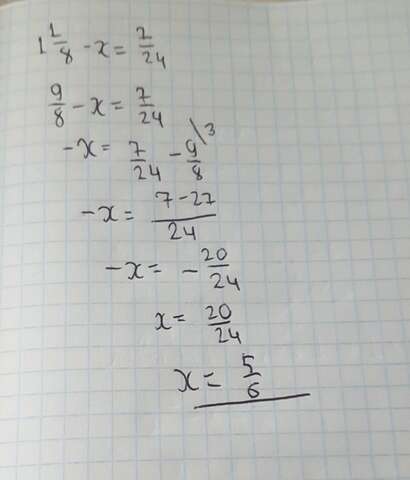 1 1/8 - x = 7/24
9/8 - x = 7/24
-x = 7/24 - 9/8 \3
-x = (7-27)/24
-x = - 20/24
x = 20/24
x = 5/6